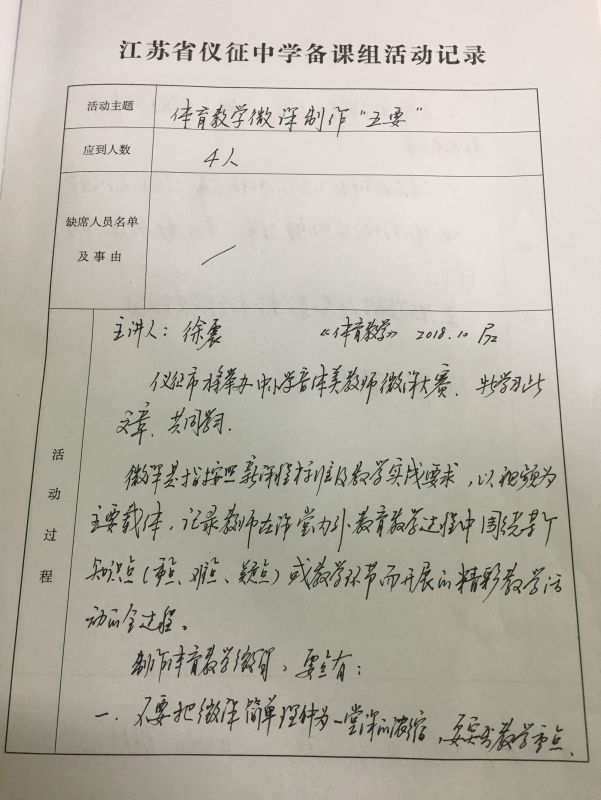 江苏省仪征中学备课组活动记录
活动主题 体育教学微课制作“五要”
应到人数 4人
缺席人员名单
及事由 —
活动过程
主讲人：徐震 《体育教学》 2018.10 P52
仪征市将举办中小学音体美教师微课大赛，特学习此
文章，共同学习.
微课是指按照新课程标准及教学实践要求，以视频为
主要载体，记录教师在课堂内外教育教学过程中围绕某个
知识点（重点、难点、疑点）或教学环节而开展的精彩教学活
动的全过程。
制作体育教学微课，要点有：
一．不要把微课简单理解为一堂课的浓缩，要突出教学重点、